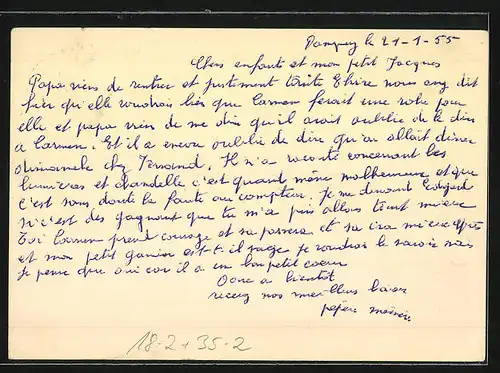 le 21-1-55
Chers enfants et mon petit Jacques
Papa vien de rentrer et justement tante nous avez dit
hier qu'elle voudrais bien que Carmen ferait une robe pour
elle et papa vien de me dire qu'il avait oublié de le dire
a Carmen. Et il a encore oublié de dire qu'on allait diner
dimanche chez Fernand, Il n'a raconté concernant les
lumières et chandelle c'est quand même malheureux et que
c'est sans doute la faute au compteur. Je me demand
si c'est des que tu m'a pris allons tant mieux
Toi Carmen prend courage et sa passera et sa ira mieux après
et mon petit est-t-il sage je voudrai le savoir mais
je pense que oui car il a un bon petit coeur
Donc a bientôt
recevez nos meilleurs baiser
pépère mémère
18-2+35-2